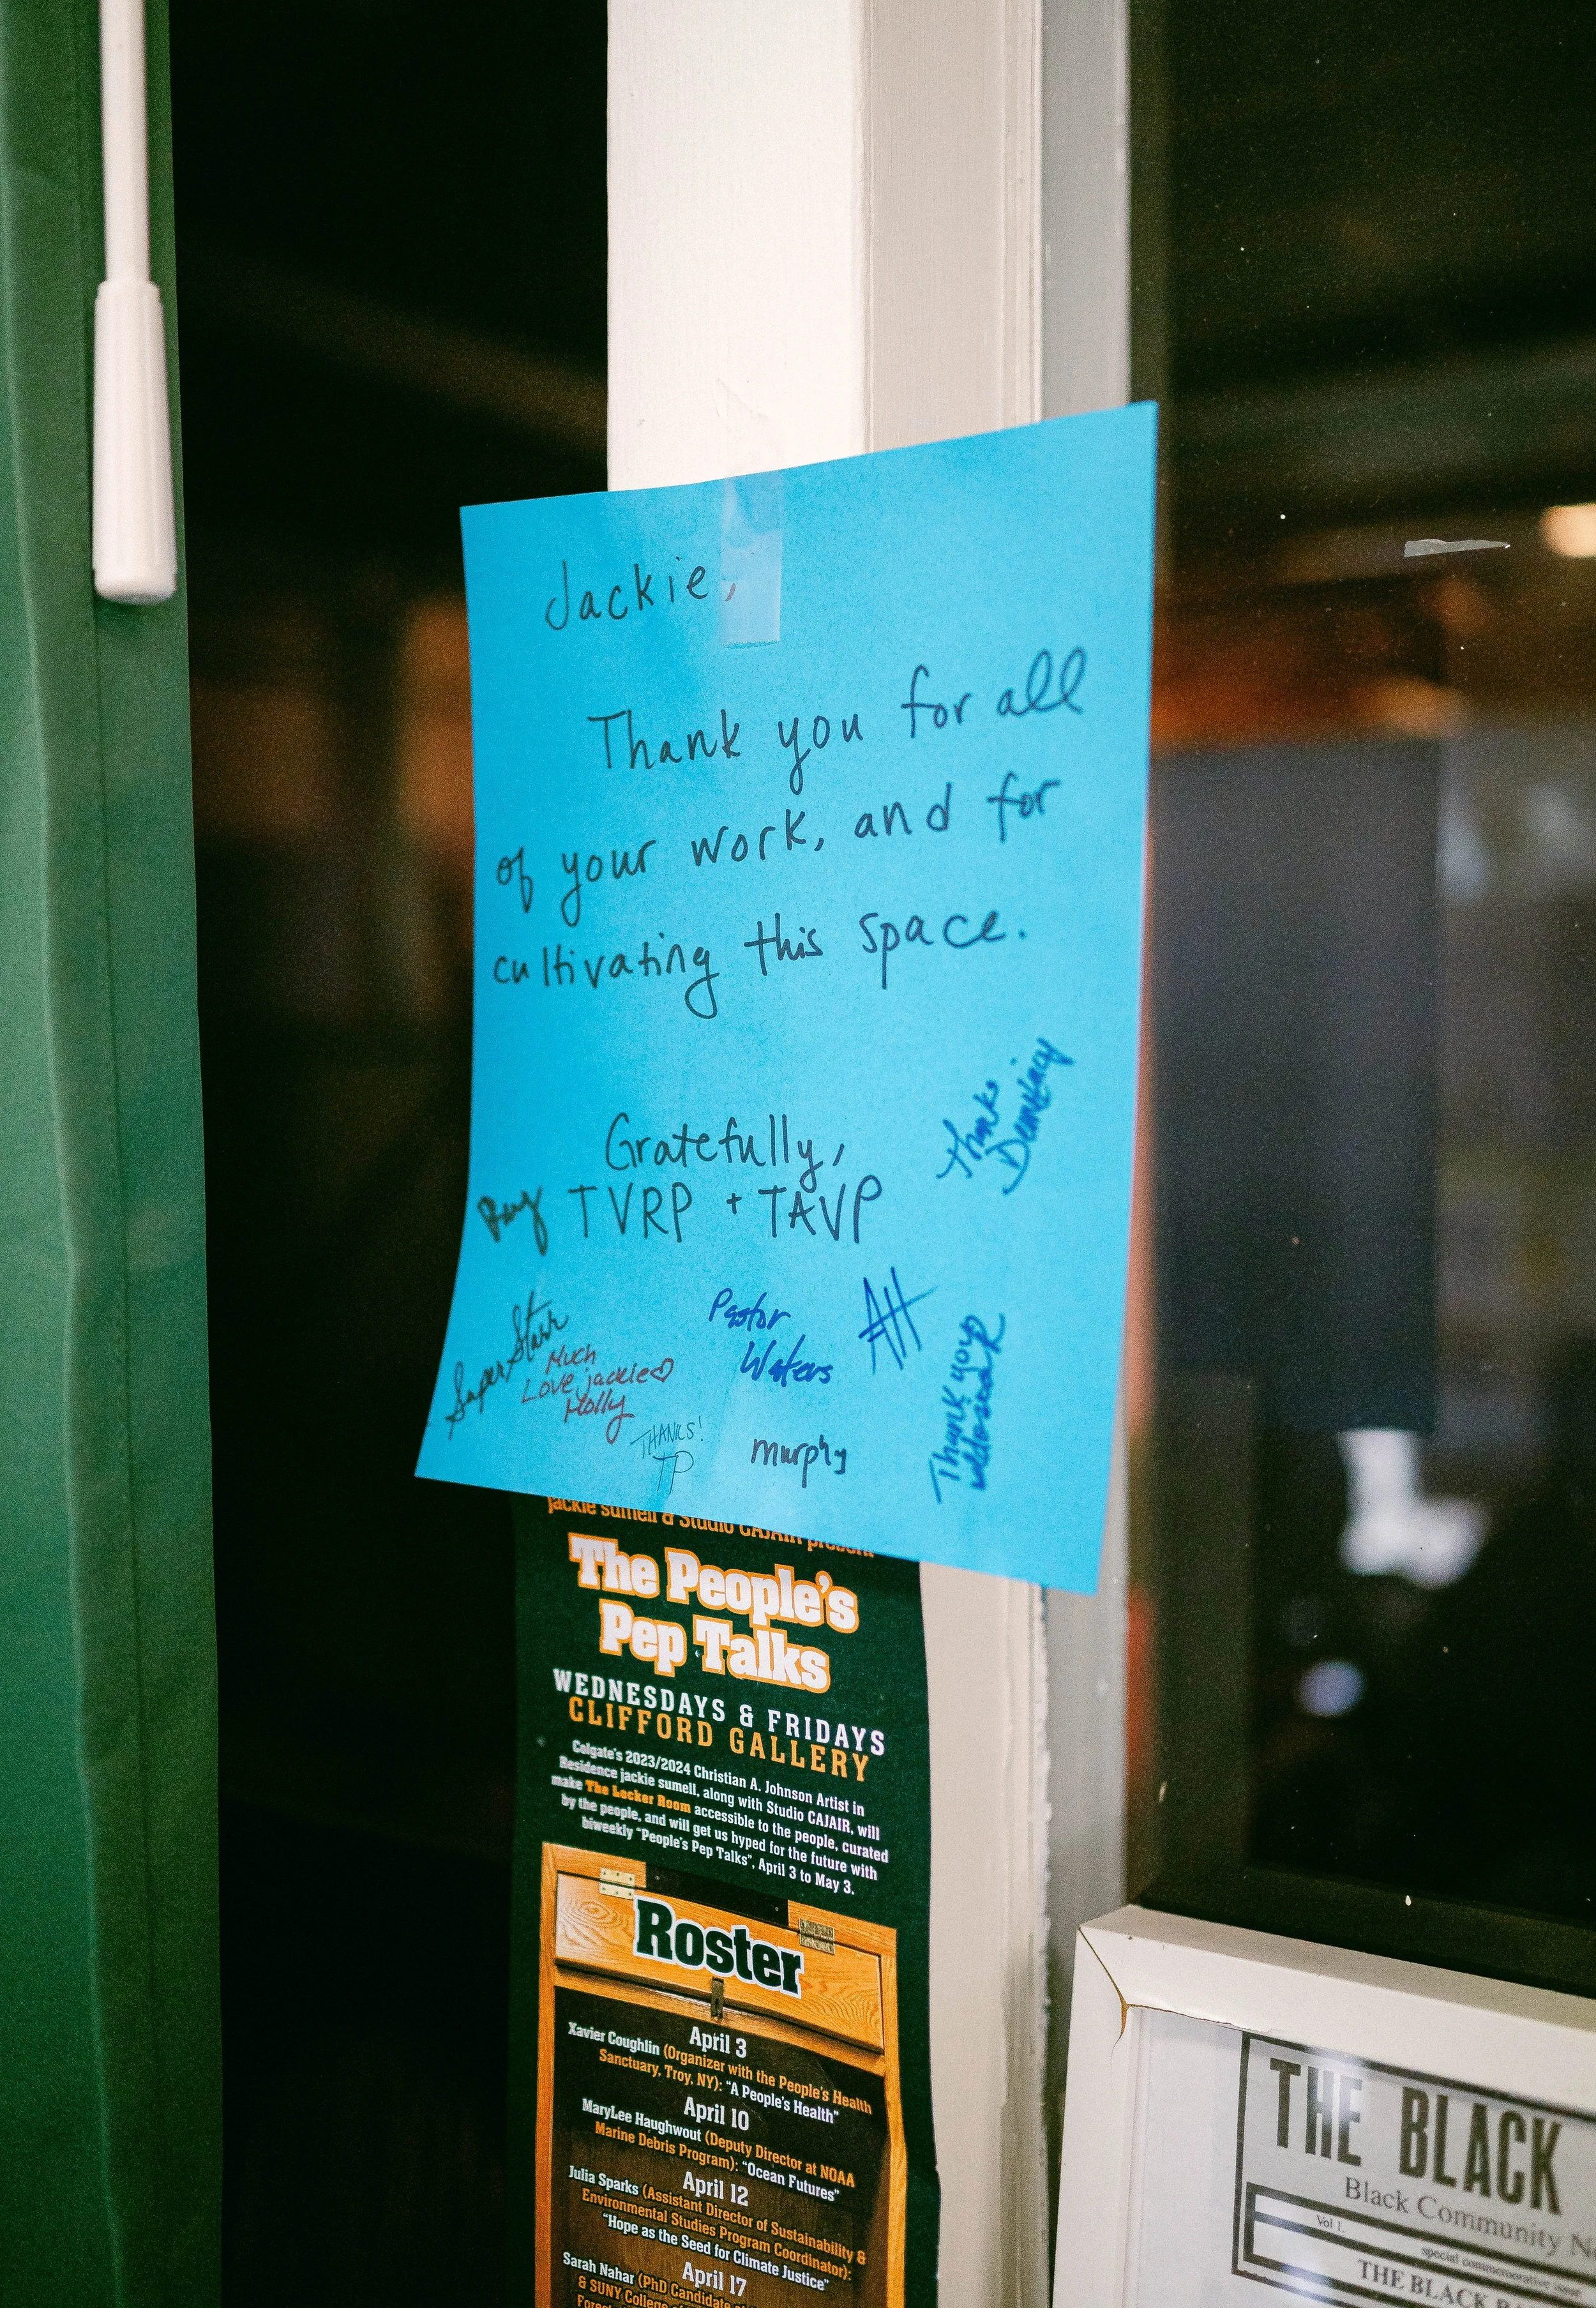 Jackie,
Thank you for all
of your work, and for
cultivating this space.
Gratefully,
TVRP + TAVP
Thanks
Super Starr
Much
Love jackie
Molly
Pastor
Waters
AH
Thank you
THANKS!
TP
murphy
jackie sumell & Studio CAJAIR present
The People's
Pep Talks
WEDNESDAYS & FRIDAYS
CLIFFORD GALLERY
Colgate's 2023/2024 Christian A. Johnson Artist in
Residence jackie sumell, along with Studio CAJAIR, will
make The Locker Room accessible to the people, curated
by the people, and will get us hyped for the future with
biweekly "People's Pep Talks", April 3 to May 3.
Roster
April 3
Xavier Coughlin (Organizer with the People's Health
Sanctuary, Troy, NY): "A People's Health"
April 10
MaryLee Haughwout (Deputy Director at NOAA
Marine Debris Program): "Ocean Futures"
April 12
Julia Sparks (Assistant Director of Sustainability &
Environmental Studies Program Coordinator):
"Hope as the Seed for Climate Justice"
April 17
Sarah Nahar (PhD Candidate
& SUNY College
THE BLACK
Black Community
Vol 1
special commemorative issue
THE BLACK